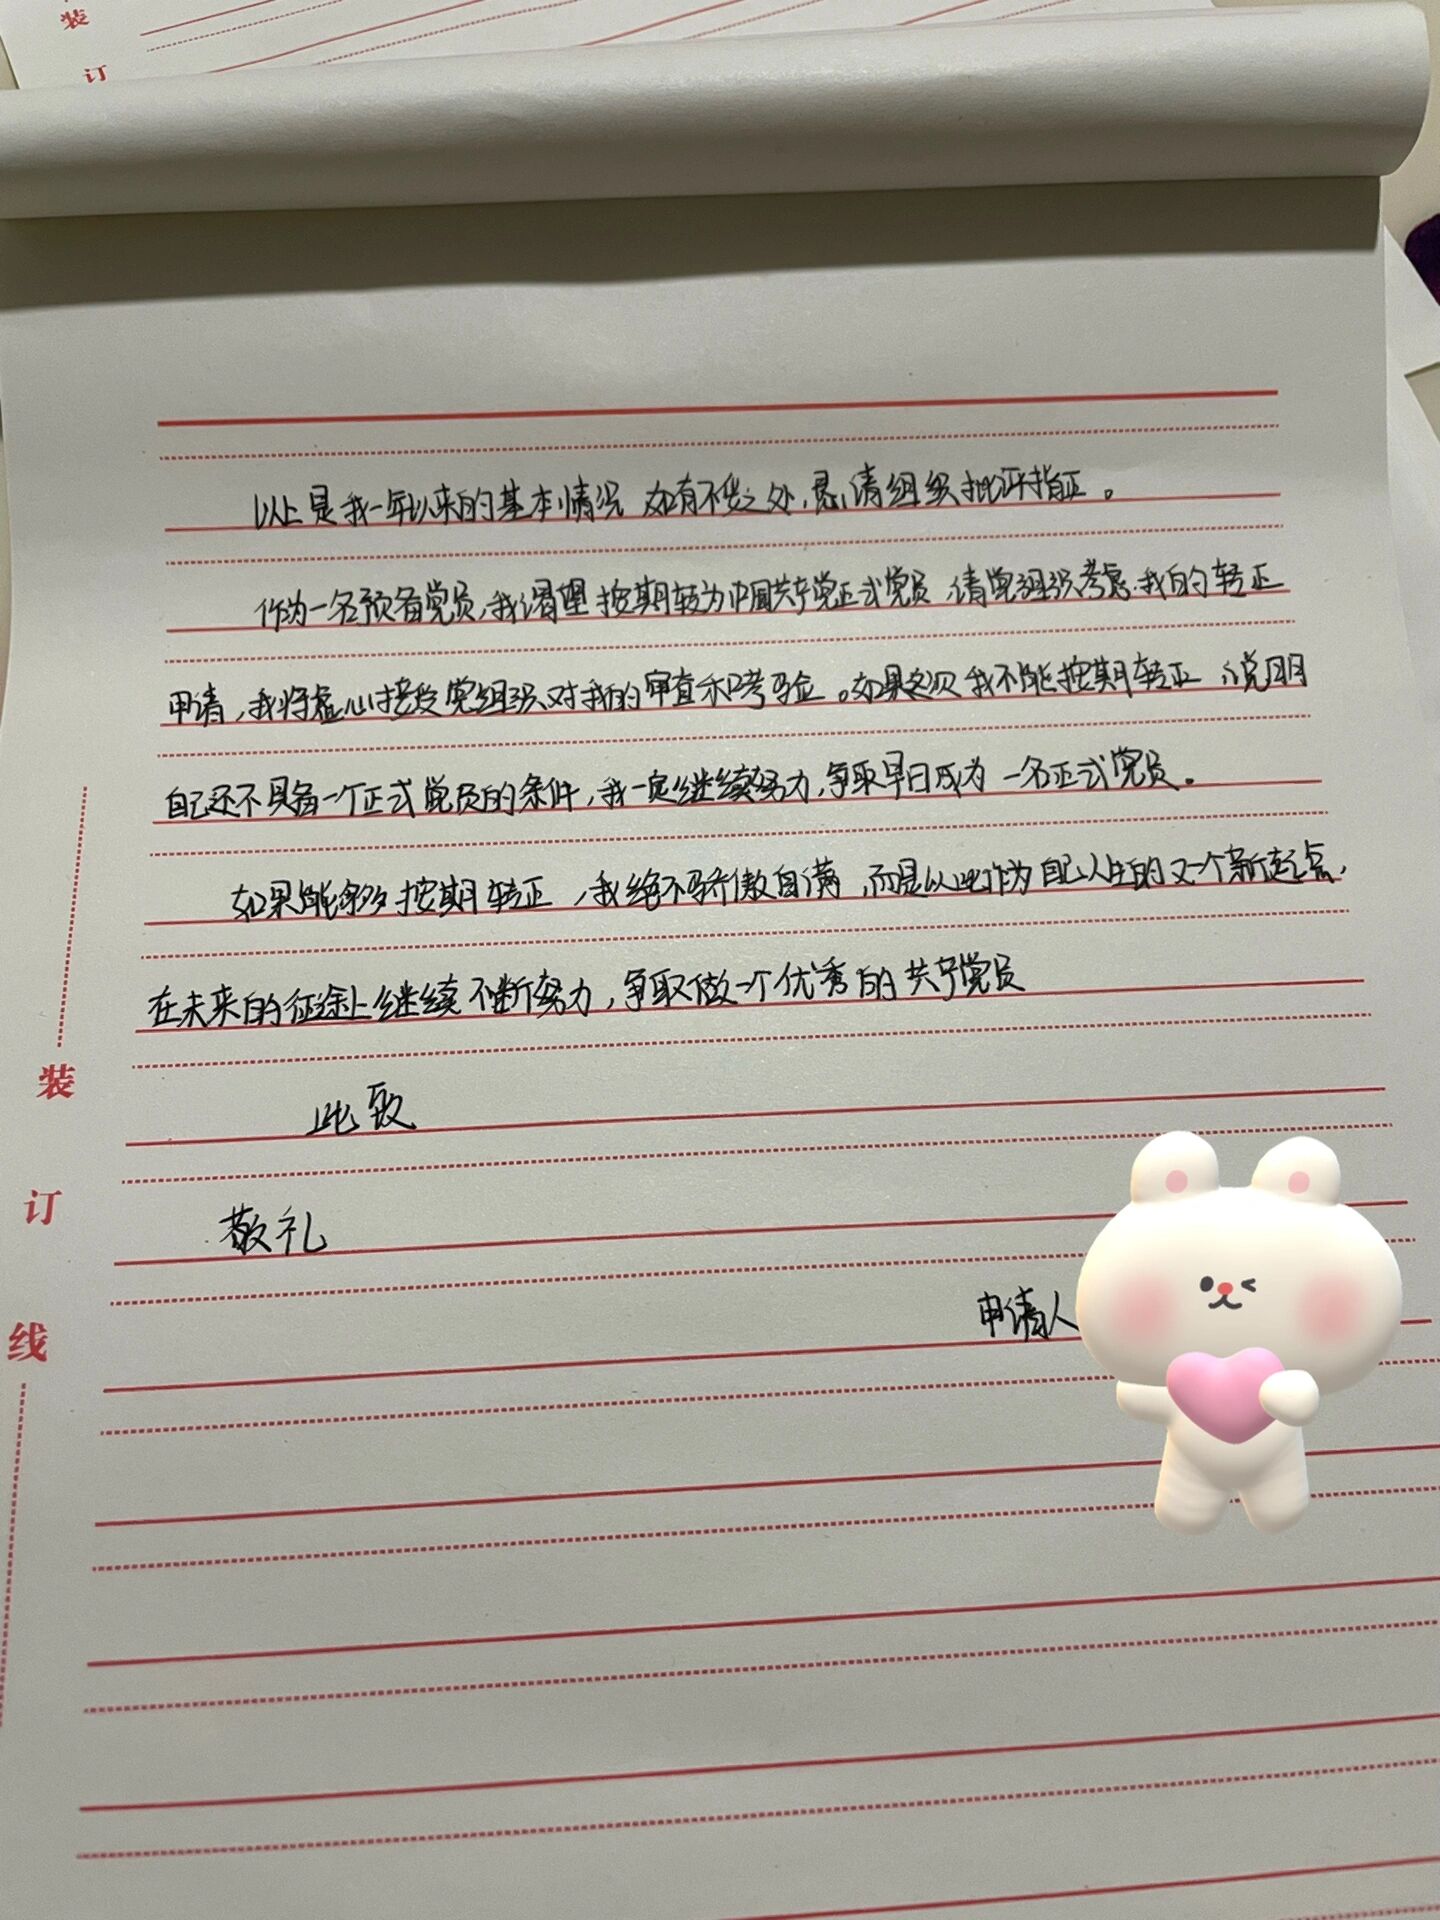 装
订
以上是我一年以来的基本情况 如有不妥之处,恳请组织批评指正。
作为一名预备党员,我渴望按期转为中国共产党正式党员,请党组织考虑.我的转正
申请,我将虚心接受党组织对我的审查和考验。如果这次我不能按期转正,说明
自己还不具备一个正式党员的条件,我一定继续努力,争取早日成为一名正式党员。
如果能够按期转正,我绝不骄傲自满,而是以此作为自己人生的又一个新起点,
在未来的征途上继续不断努力,争取做一个优秀的共产党员
此致
敬礼
申请人
装
订
线